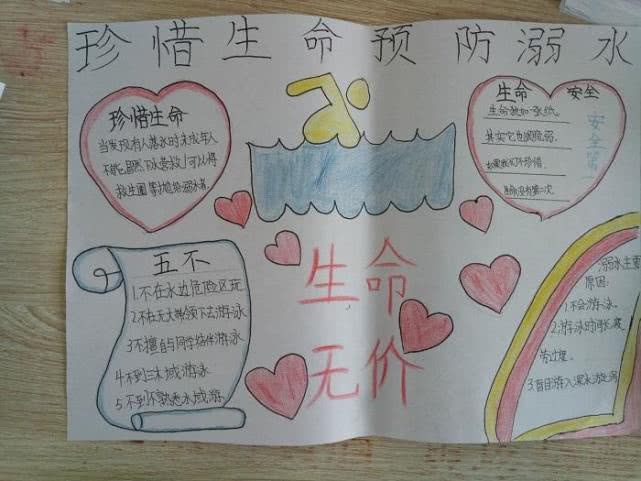 珍惜生命预防溺水
珍惜生命
当发现有人落水时未成年人
不能冒然下水营救,可以将
救生圈等抛给溺水者。
生命 安全
生命就如一张纸。
其实它也很脆弱。
如果我们不珍惜
生命没有第二次
安全第一
五不
1.不在水边危险区玩
2.不在无大人带领下去游泳
3不擅自与同学结伴游泳
4不到三木域游泳
5不到不熟悉水域游
生命
无价
溺水主要
原因:
1.不会游泳。
2.游泳时间长疲
劳过度。
3盲目游入深水漩涡